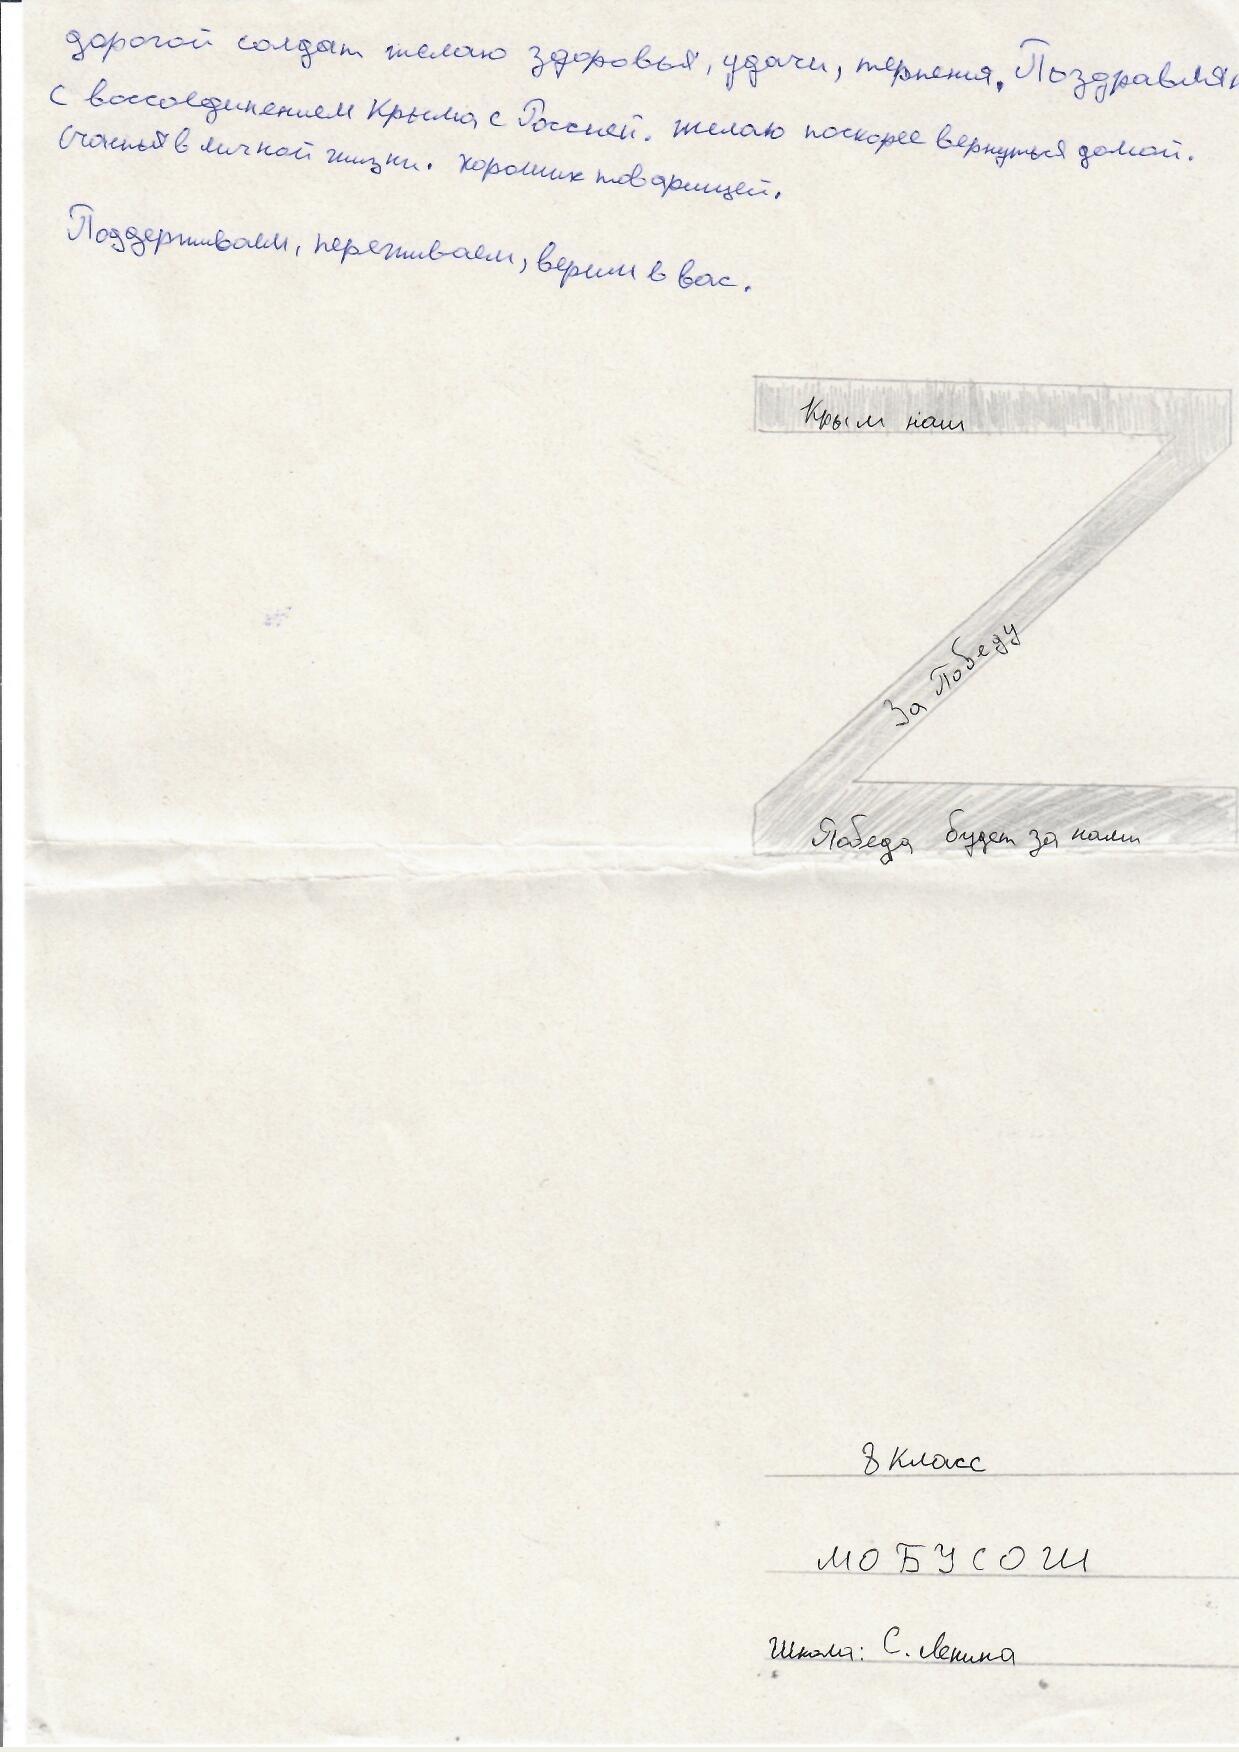 дорогой солдат желаю здоровья, удачи, терпения. Поздравляю
с воссоединением Крыма с Россией. желаю поскорее вернуться домой.
счастья в личной жизни. хороших товарищей.
Поддерживаем, переживаем, верим в вас.
Крым наш
За Победу
Победа будет за нами
8 класс
МОБУСОШ
Школа: С. Ленина